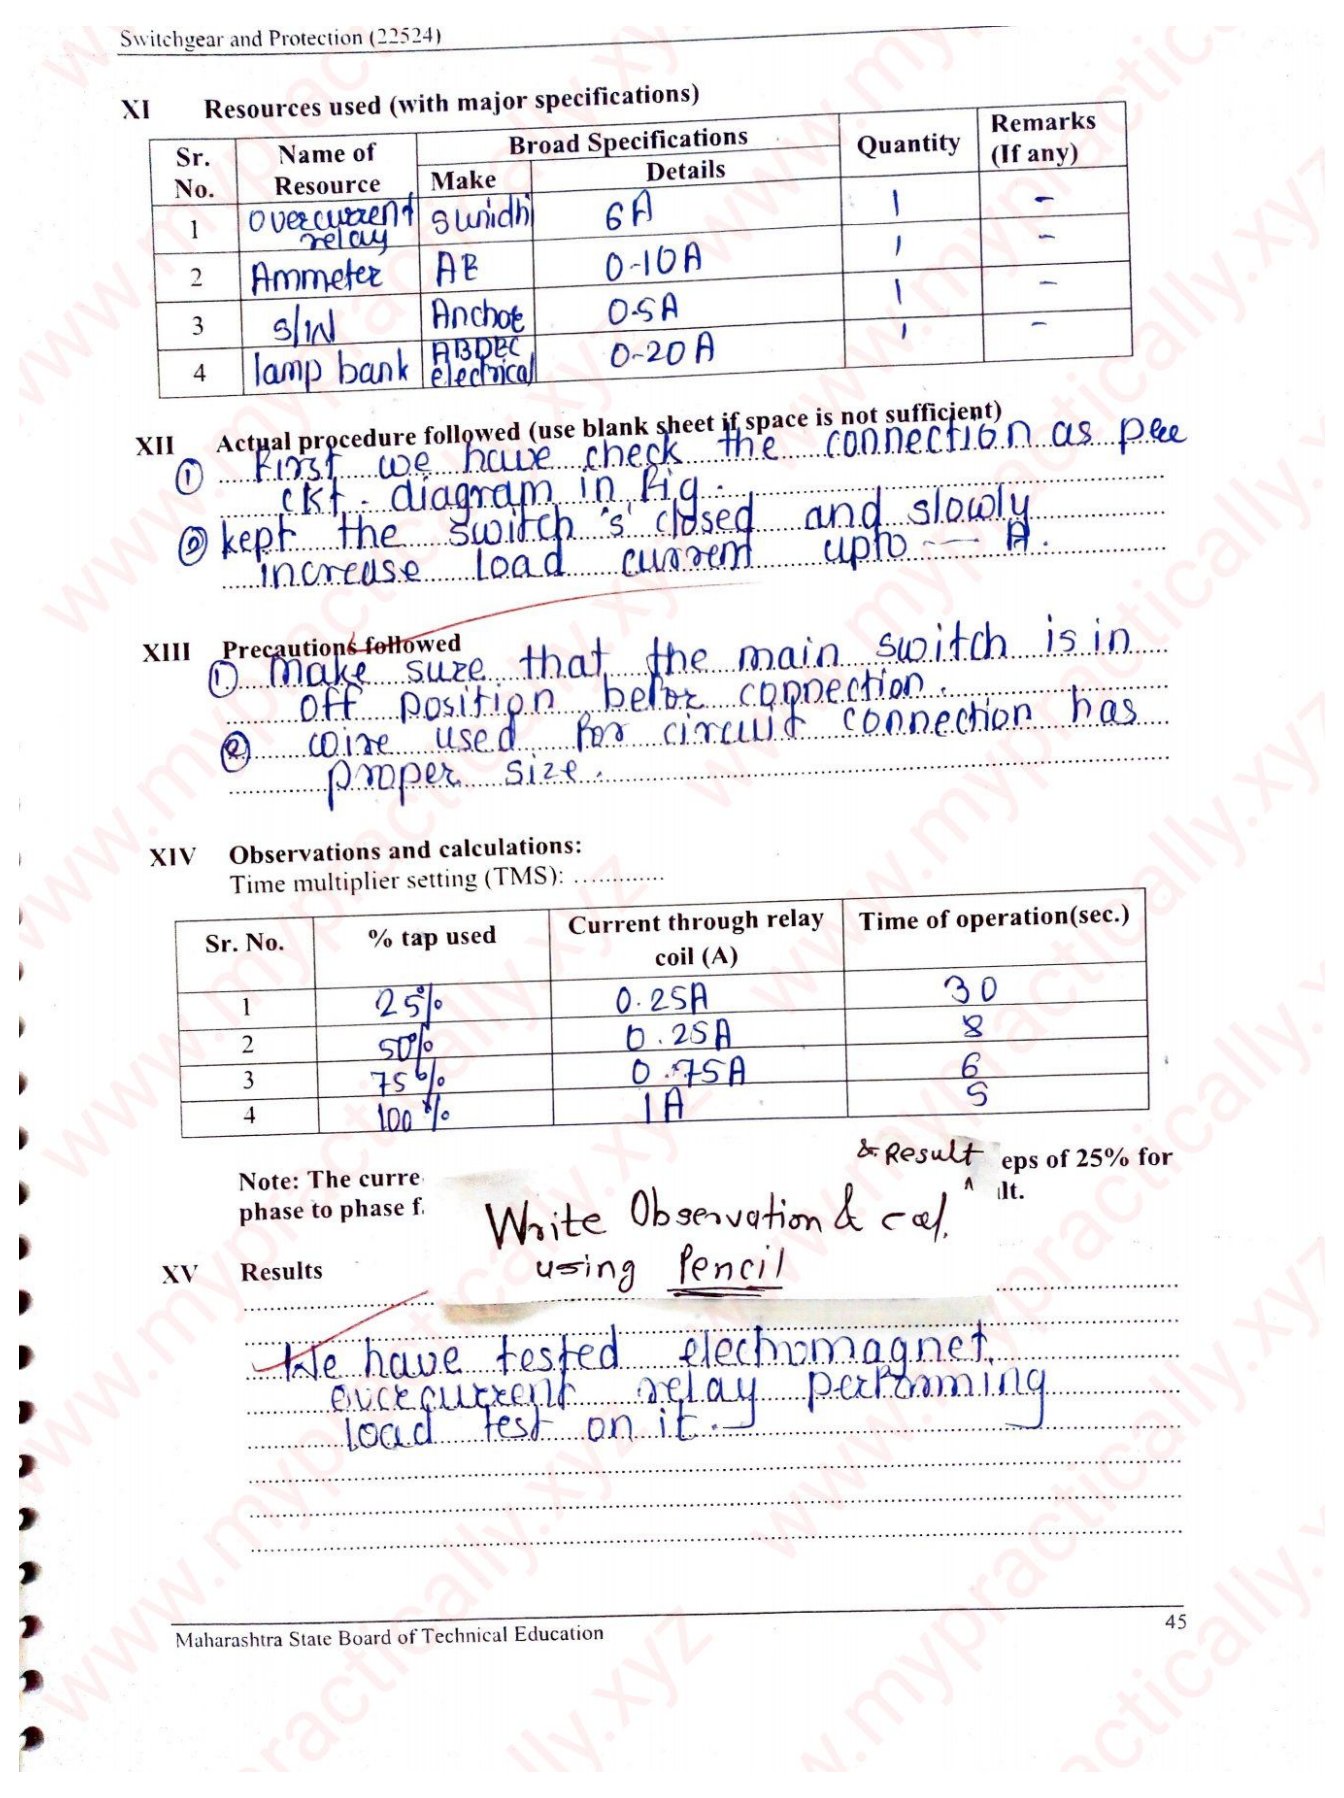 Switchgear and Protection (22524)
XI Resources used (with major specifications)
Sr. No. Name of Resource Broad Specifications Quantity Remarks (If any)
Make Details
1 overcurrent relay sunidhi 6A 1 -
2 Ammeter AE 0-10A 1 -
3 s/w Anchor 0-5A 1 -
4 lamp bank ABDEC electrical 0-20A 1 -
XII Actual procedure followed (use blank sheet if space is not sufficient)
① First we have check the connection as per
ckt. diagram in fig.
② kept the switch 's' closed and slowly
increase load current upto --- A.
XIII Precautions followed
① make sure that the main switch is in
off position befor connection.
② wire used for circuit connection has
proper size.
XIV Observations and calculations:
Time multiplier setting (TMS): .............
Sr. No. % tap used Current through relay coil (A) Time of operation(sec.)
1 25% 0.25A 30
2 50% 0.25A 8
3 75% 0.75A 6
4 100% 1A 5
Note: The curre & Result eps of 25% for
phase to phase f. Write Observation & cal. ^ ilt.
using Pencil
XV Results
We have tested electromagnet
overcurrent relay performing
load test on it.
Maharashtra State Board of Technical Education
45
www.mypractically.xyz